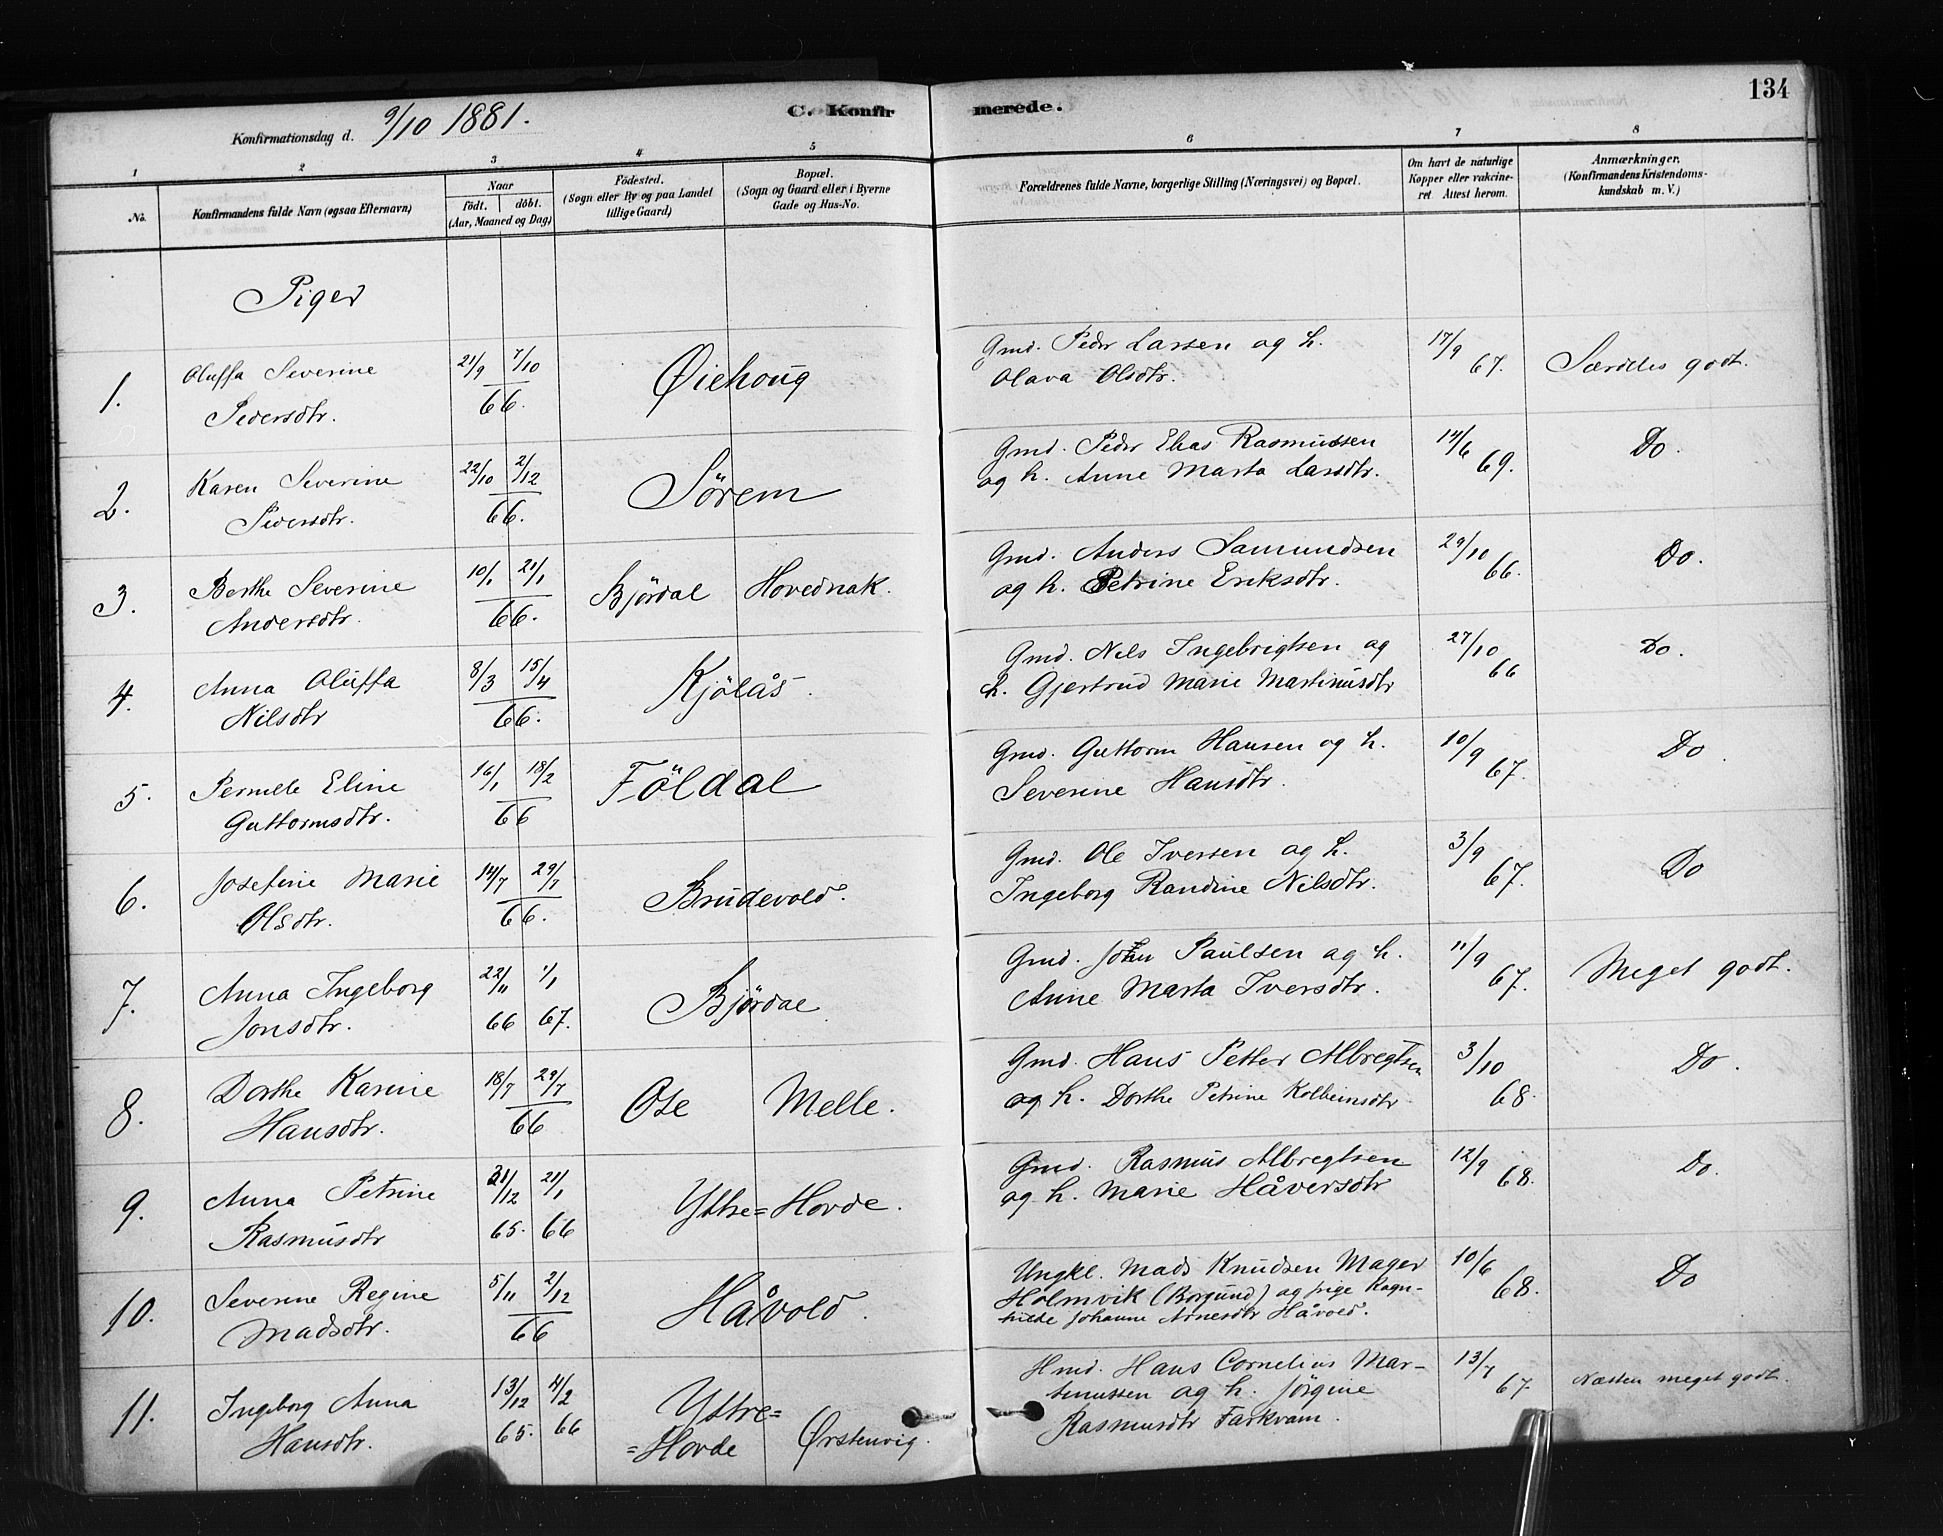 134
C. Konfirmerede.
Konfirmationsdag d. 9/10 1881.
1 2 3 4 5 6 7 8
No. Konfirmandens fulde Navn (ogsaa Efternavn) Naar født. døbt. (Aar, Maaned og Dag) Födested. (Sogn eller By og paa Landet tillige Gaard) Bopæl. (Sogn og Gaard eller i Byerne Gade og Hus-No. Forældrenes fulde Navne, borgerlige Stilling (Næringsvei) og Bopæl. Om havt de naturlige Kopper eller vakcineret Attest herom. Anmærkninger. (Konfirmandens Kristendomskundskab m. V.)
Piger
1. Oluffa Severine Pedersdtr. 21/9 7/10 66. Øiehoug Gmd. Peder Larsen og h. Olava Olsdtr. 17/9 67. Særdeles godt.
2. Karen Severine Pedersdtr. 22/10 2/12 66. Sörem Gmd. Peder Elias Rasmussen og h. Anne Marta Larsdtr. 14/6 69. Do.
3. Berthe Severine Andersdtr. 10/1 21/1 66. Björdal Hovednak. Gmd. Anders Samundsen og h. Petrine Eriksdtr. 29/10 66. Do.
4. Anna Oluffa Nilsdtr 8/3 15/4 66. Kjölås. Gmd. Nils Ingebrigtsen og h. Gjertrud Marie Martinusdtr 27/10 66 Do.
5. Pernille Eline Guttormsdtr. 16/1 18/2 66 Földal Gmd. Guttorm Hansen og h. Severine Hansdtr. 10/9 67. Do
6. Josefine Marie Olsdtr. 14/7 29/7 66. Brudevold. Gmd. Ole Iversen og h. Ingeborg Randine Nilsdtr. 3/9 67. Do
7. Anna Ingeborg Jonsdtr. 22/11 66 1/1 67. Björdal Gmd. John Paulsen og h. Anne Marta Iversdtr. 11/9 67. Meget godt.
8. Dorthe Karine Hansdtr. 18/7 29/7 66 Ose Melle. Gmd. Hans Petter Albregtsen og h. Dorthe Petrine Kolbeinsdtr 3/10 68. Do.
9. Anna Petrine Rasmusdtr 31/12 65. 21/1 66 Yttre=Hovde. Gmd. Rasmus Albregtsen og h. Marie Håversdtr 12/9 68. Do.
10. Severine Regine Madsdtr. 5/11 2/12 66 Håvold. Ungkl. Mads Knudsen Mager Holmvik (Borgund) og pige Ragnhilde Johanne Arnesdtr Håvold. 10/6 68. Do
11. Ingeborg Anna Hansdtr. 13/12 65. 4/2 66 Yttre==Hovde Ørstenvig. Hmd. Hans Cornelius Martinussen og h. Jörgine Rasmusdtr Farkvam. 13/7 67. Næsten meget godt.